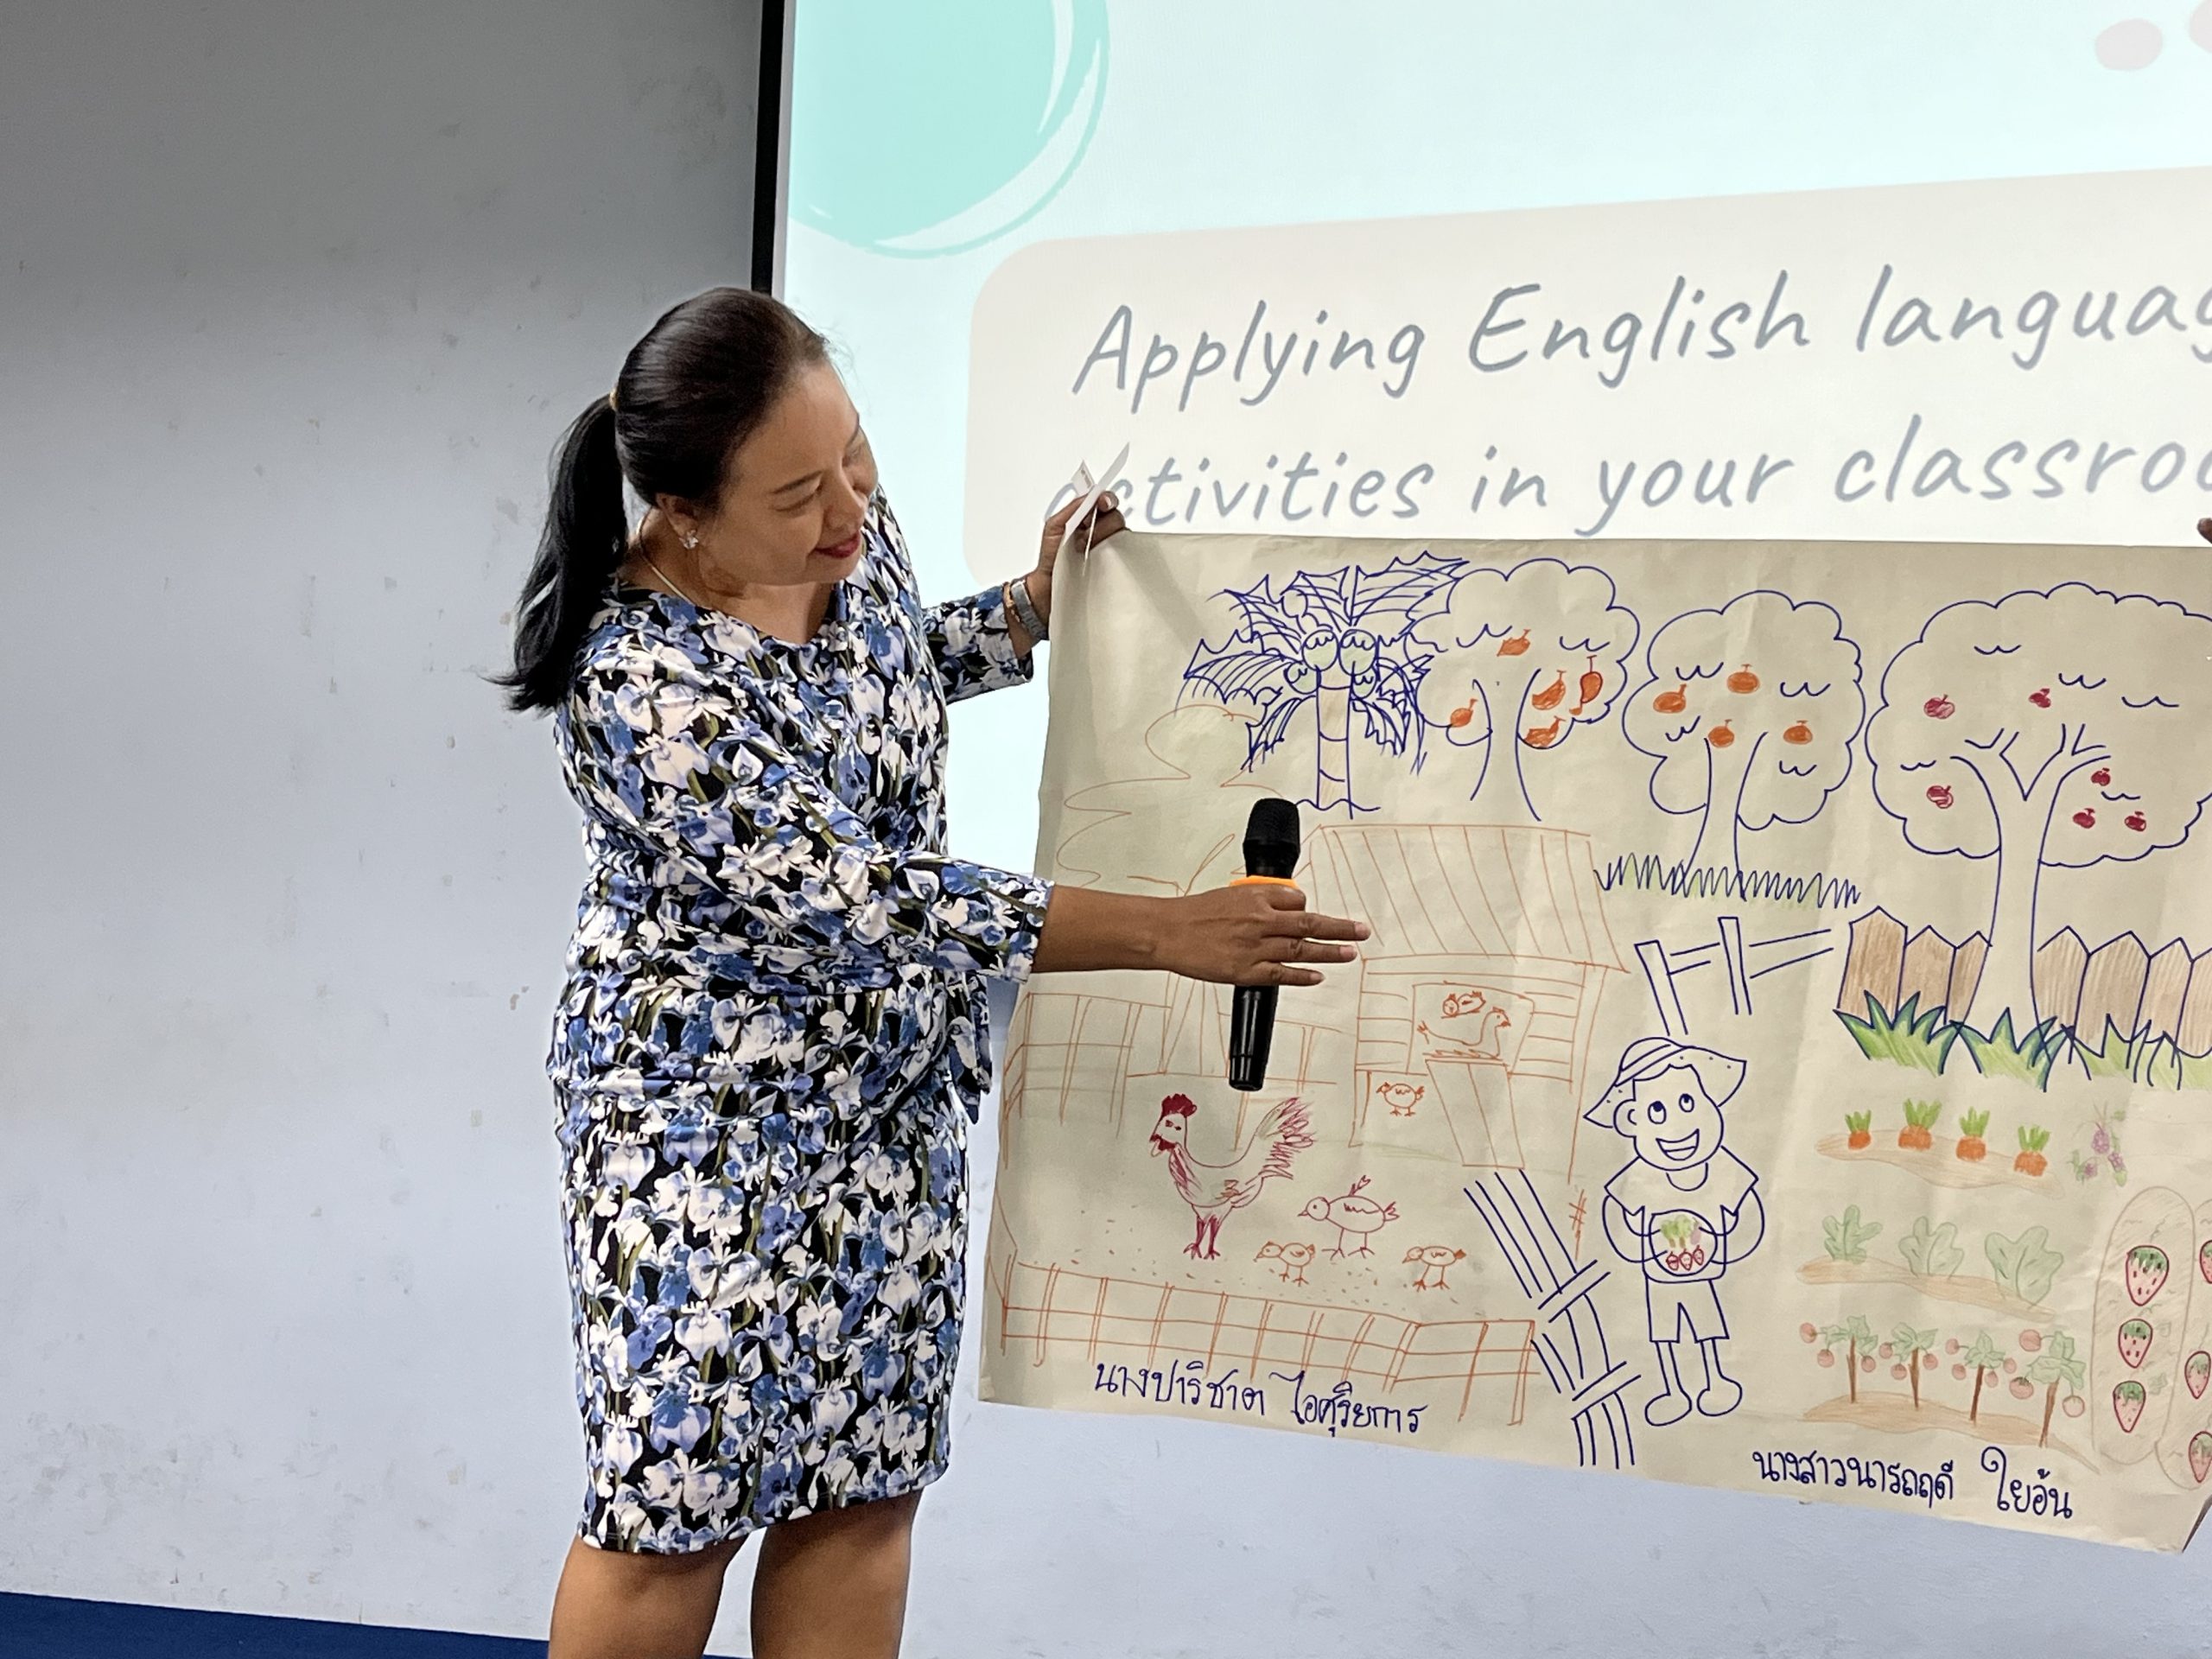 Applying English languag
activities in your classroo
นางปาริชาต ไอศุริยการ
นางสาวนารถฤดี ใยอ้น